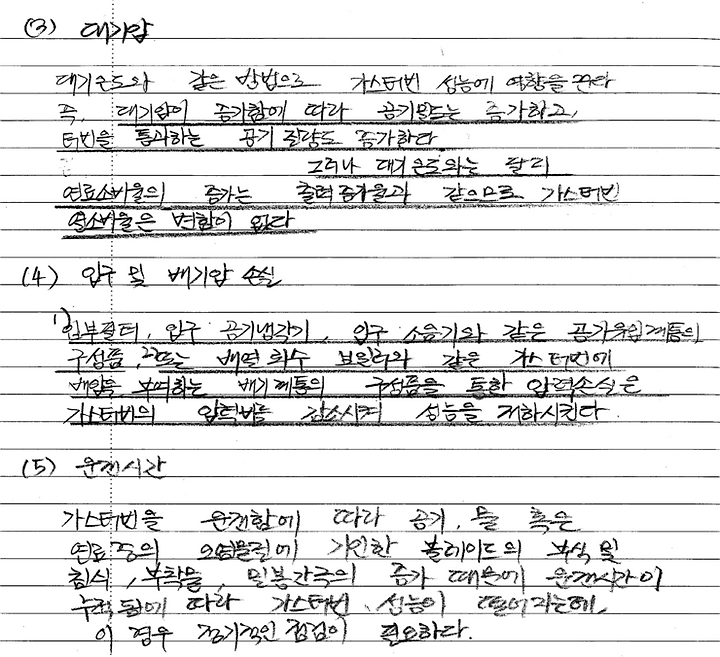 (3) 대기압
대기온도와 같은 방법으로 가스터빈 성능에 영향을 준다
즉, 대기압이 증가함에 따라 공기밀도는 증가하고,
터빈을 통과하는 공기 질량도 증가한다
그러나 대기온도와는 달리
연료소비율의 증가는 출력증가율과 같으므로 가스터빈
열소비율은 변함이 없다
(4) 입구 및 배기압 손실
1) 입구필터, 입구 공기냉각기, 입구 소음기와 같은 공기유입계통의
구성품, 2) 또는 배열 회수 보일러와 같은 가스터빈에
배압을 부여하는 배기계통의 구성품을 통한 압력손실은
가스터빈의 압력비를 감소시켜 성능을 저하시킨다.
(5) 운전시간
가스터빈을 운전함에 따라 공기, 물 혹은
연료중의 오염물질에 기인한 블레이드의 부식 및
침식, 부착물, 밀봉간극의 증가 때문에 운전시간이
누적됨에 따라 가스터빈 성능이 떨어지는데,
이 경우 정기적인 점검이 필요하다.